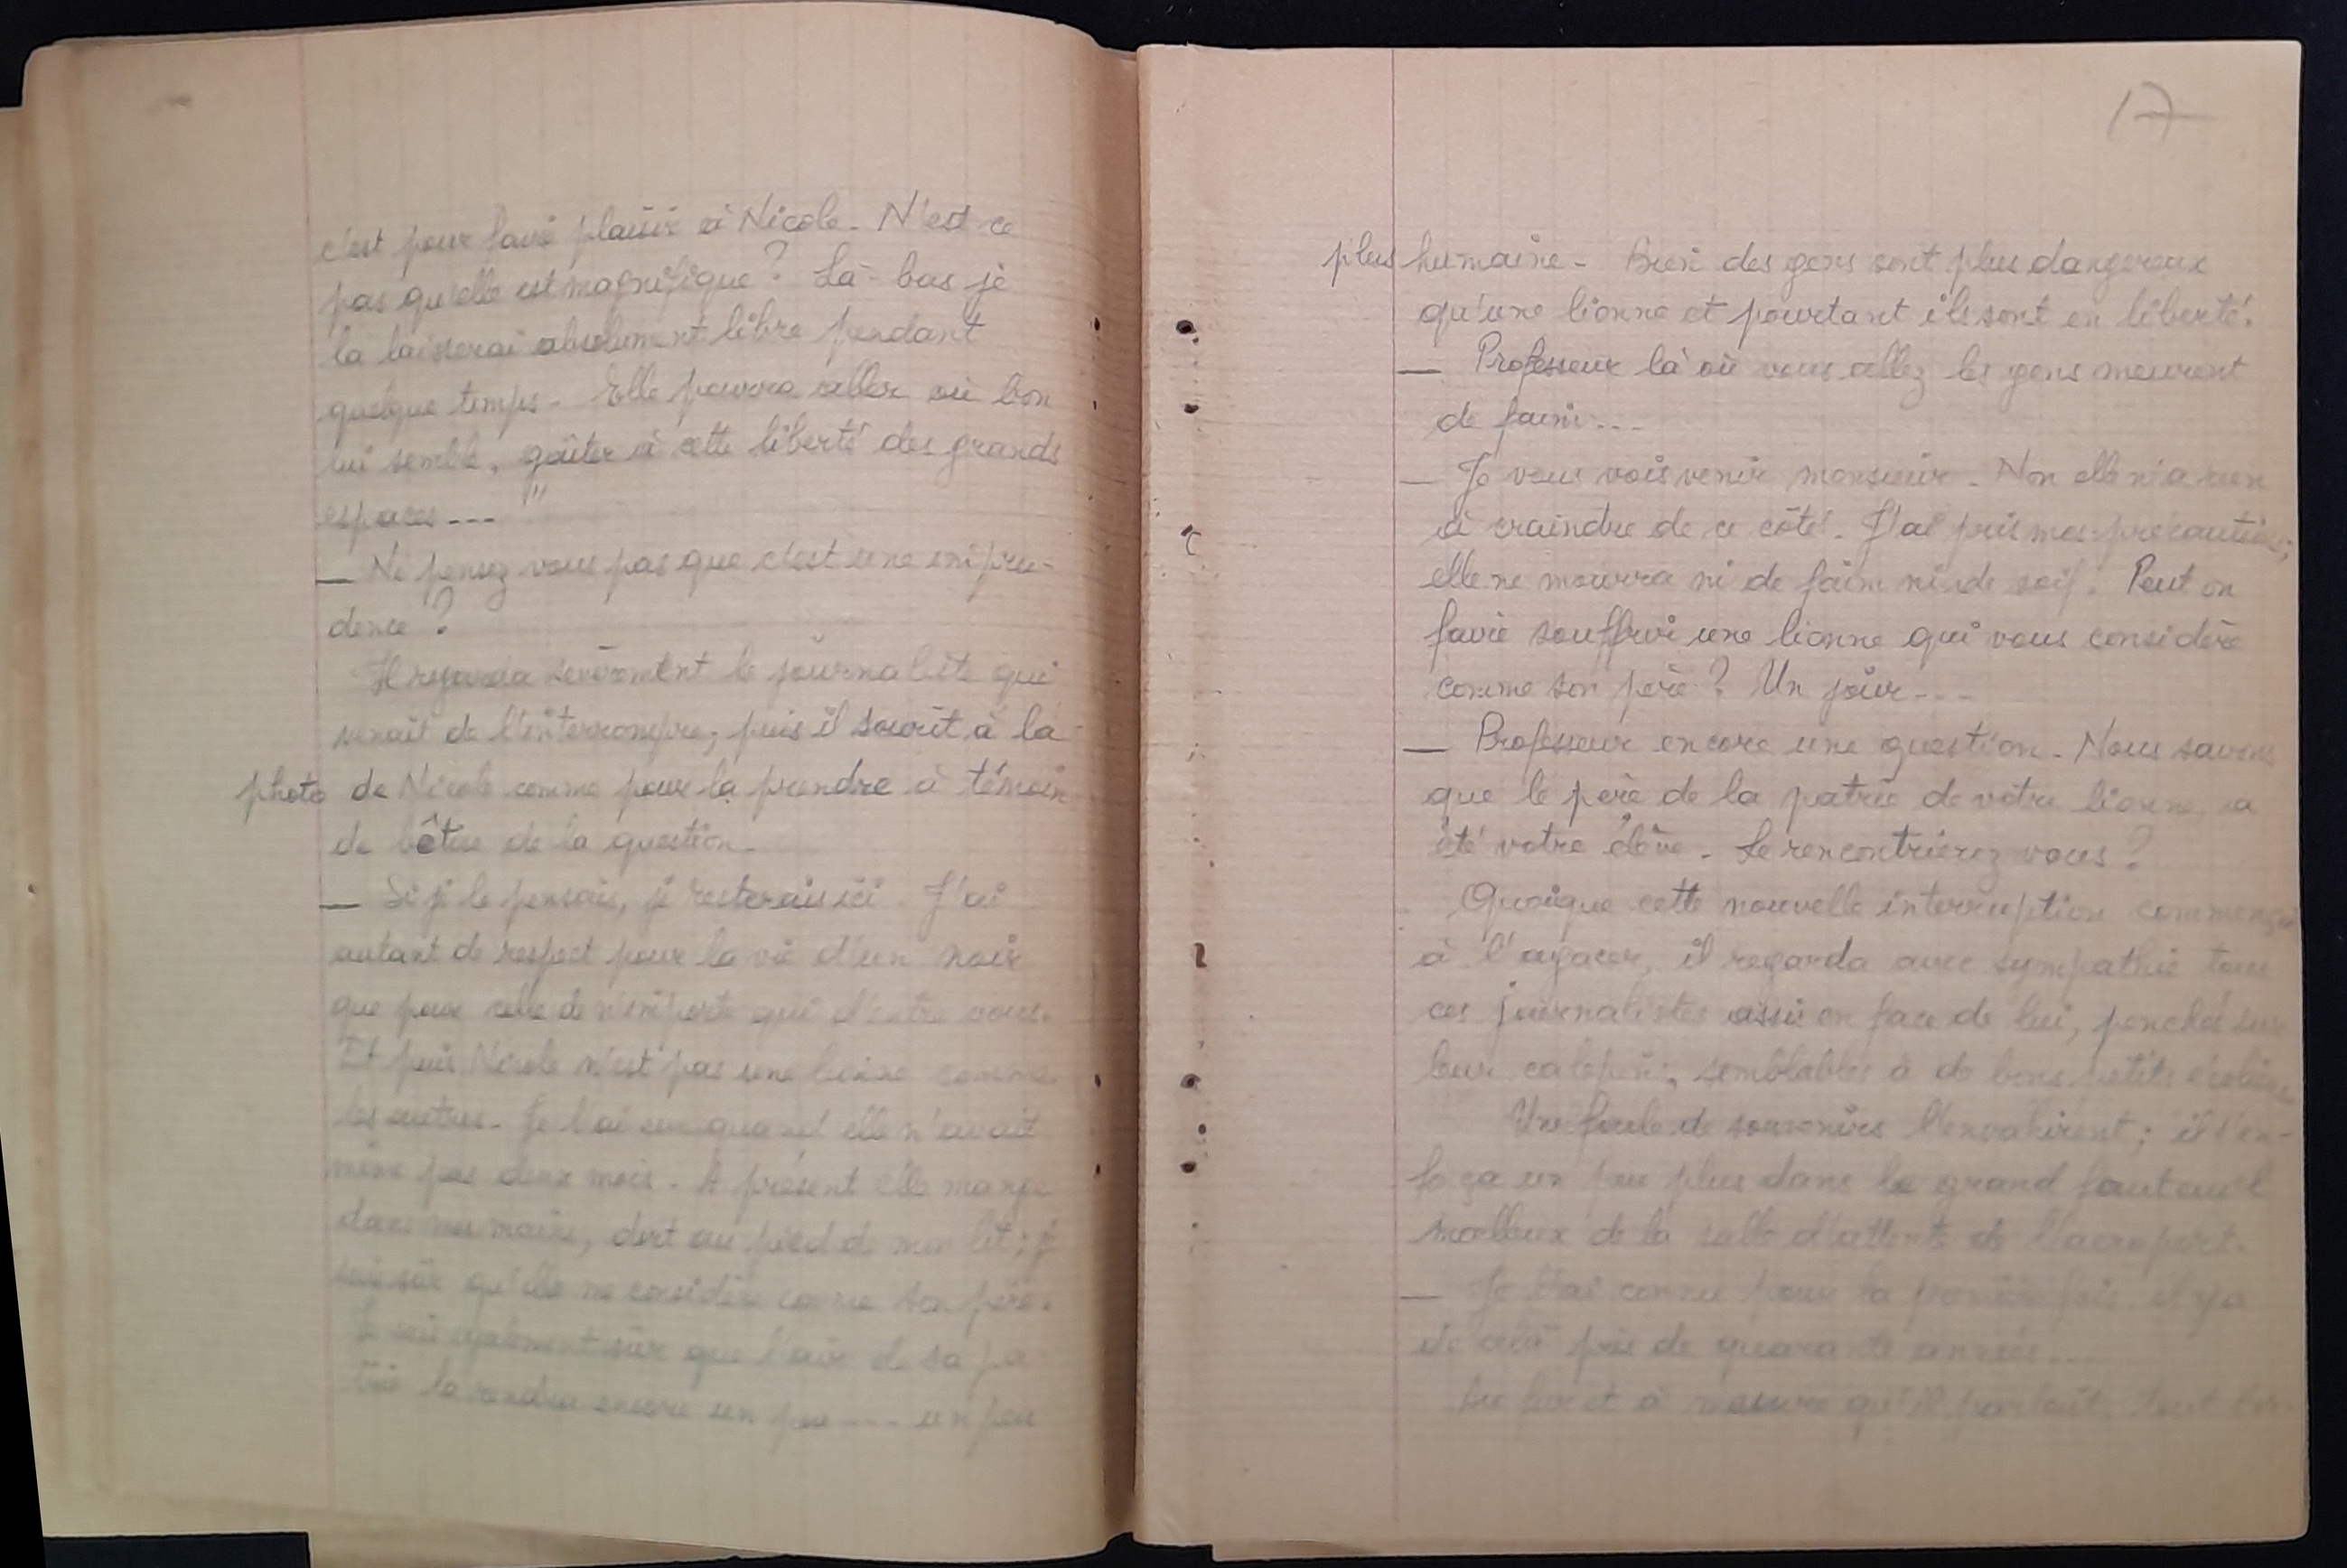 c'est pour faire plaisir à Nicole. N'est ce
pas qu'elle est magnifique ? Là-bas je
la laisserai absolument libre pendant
quelque temps. Elle pourra aller où bon
lui semble, goûter à cette liberté des grands
espaces --- "
— Ne pensez vous pas que c'est une impru-
dence ?
Il regarda sevèrement le journaliste qui
venait de l'interrompre; puis il sourit à la
photo de Nicole comme pour la prendre à témoin
de bêtise de la question.
— Si je le pensais, je resterais ici. J'ai
autant de respect pour la vie d'un noir
que pour celle de n'importe qui d'entre vous.
Et puis Nicole n'est pas une lionne comme
les autres. Je l'ai eue quand elle n'avait
même pas deux mois. A présent elle mange
dans mes mains, dort au pied de mon lit; je
suis sûr qu'elle me considère comme son père.
Je suis également sûr que l'air de sa pa
trie la rendra encore un peu --- un peu
17
plus humaine. Bien des gens sont plus dangereux
qu'une lionne et pourtant ils sont en liberté.
— Professeur là où vous allez les gens meurent
de faim ...
— Je vous vois venir monsieur. Non elle n'a rien
à craindre de ce côté. J'ai pris mes précautions;
elle ne mourra ni de faim ni de soif. Peut on
faire souffrir une lionne qui vous considère
comme son père ? Un jour ---
— Professeur encore une question. Nous savons
que le père de la patrie de votre lionne a
été votre élève. Le rencontrierez vous ?
Quoique cette nouvelle interruption commençait
à l'agacer, il regarda avec sympathie tous
ces journalistes assis en face de lui, penchés sur
leur calepin, semblables à de bons petits écoliers
Une foule de souvenirs l'envahirent; il s'en-
fonça un peu plus dans le grand fauteuil
moelleux de la salle d'attente de l'aeroport.
— Je l'ai connu pour la première fois, il y a
de cela près de quarante années ...
Au fur et à mesure qu'il parlait, tout